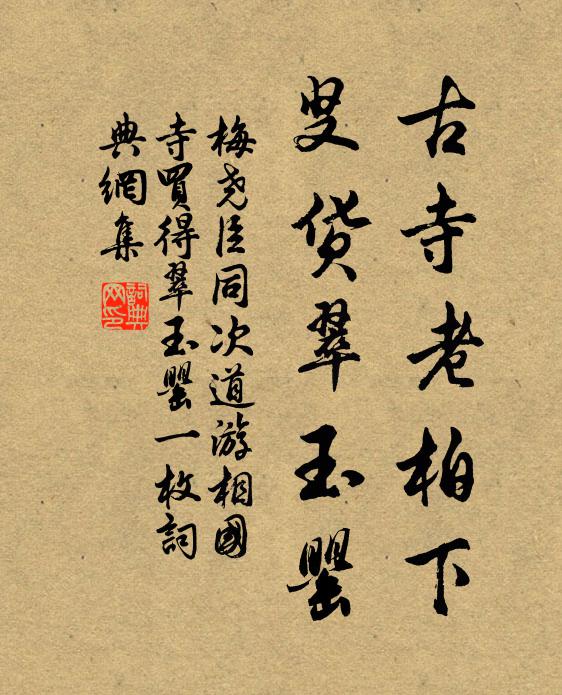 古寺老柏下
叟货翠玉罂
梅尧臣同次道游相國
寺買得翠玉罌一枚詞
典網集
詞典网印